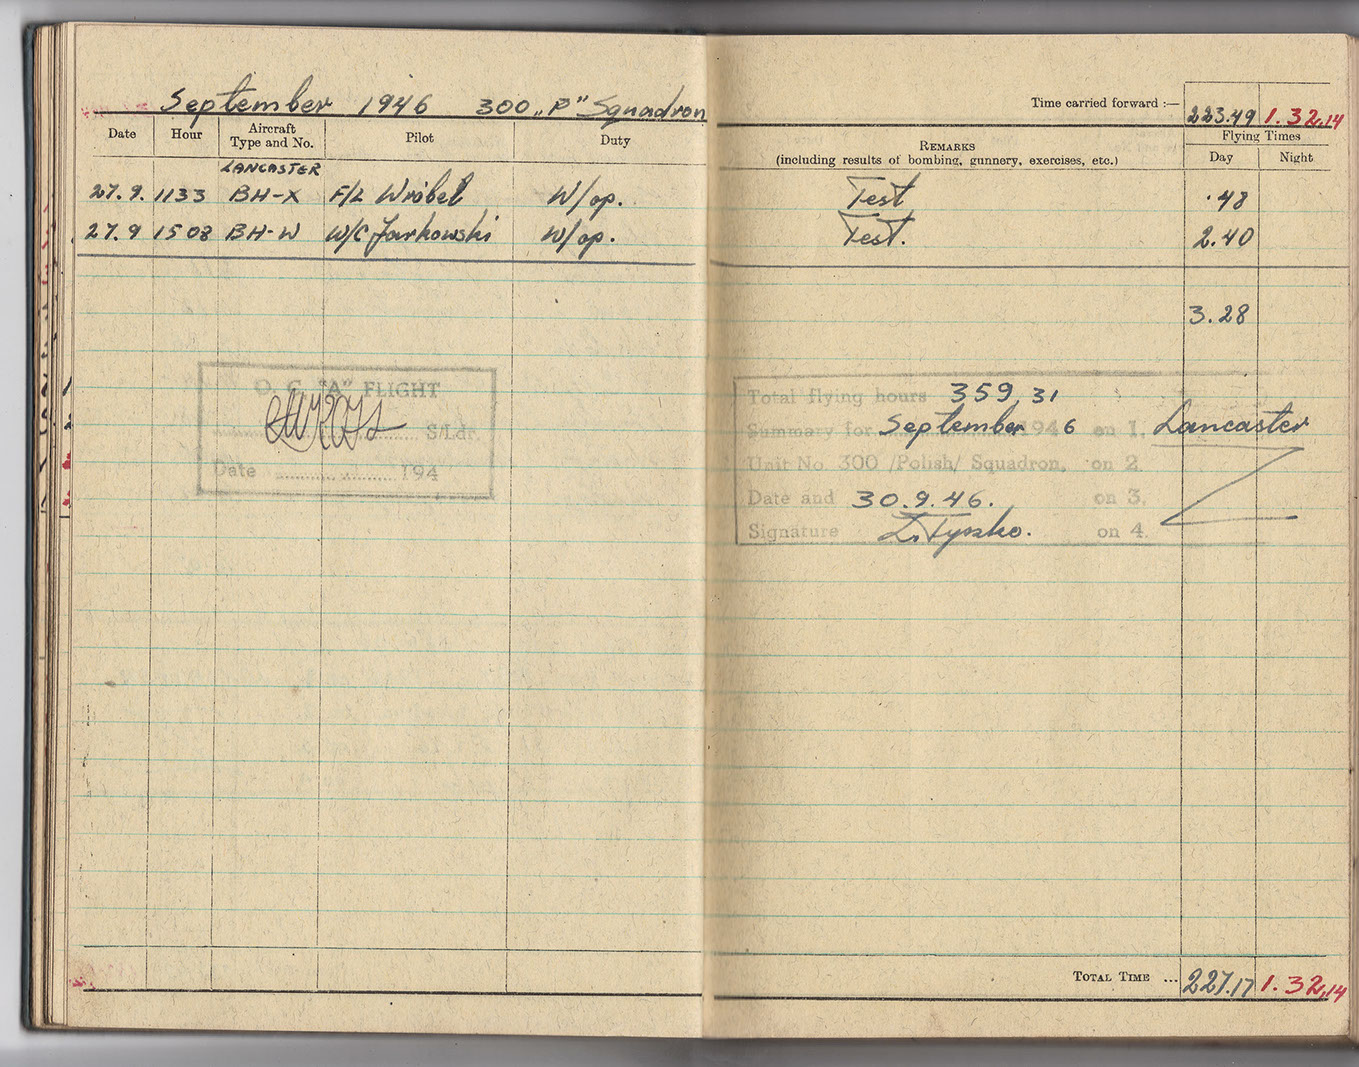 September 1946 300 „P” Squadron
Date Hour Aircraft Type and No. Pilot Duty
LANCASTER
27.9. 1133 BH-X F/L Wróbel W/op.
27.9 1508 BH-W W/C Jarkowski W/op.
O. C. "A" FLIGHT
S/Ldr.
Date 194
Time carried forward :— 223.49 1.32,14
REMARKS
(including results of bombing, gunnery, exercises, etc.)
Flying Times
Day Night
Test .48
Test. 2.40
3.28
Total flying hours 359,31
Summary for September 1946 on 1. Lancaster
Unit No. 300 /Polish/ Squadron, on 2.
Date and 30.9.46. on 3.
Signature Z. Tyszko. on 4.
TOTAL TIME ... 227.17 1.32,14